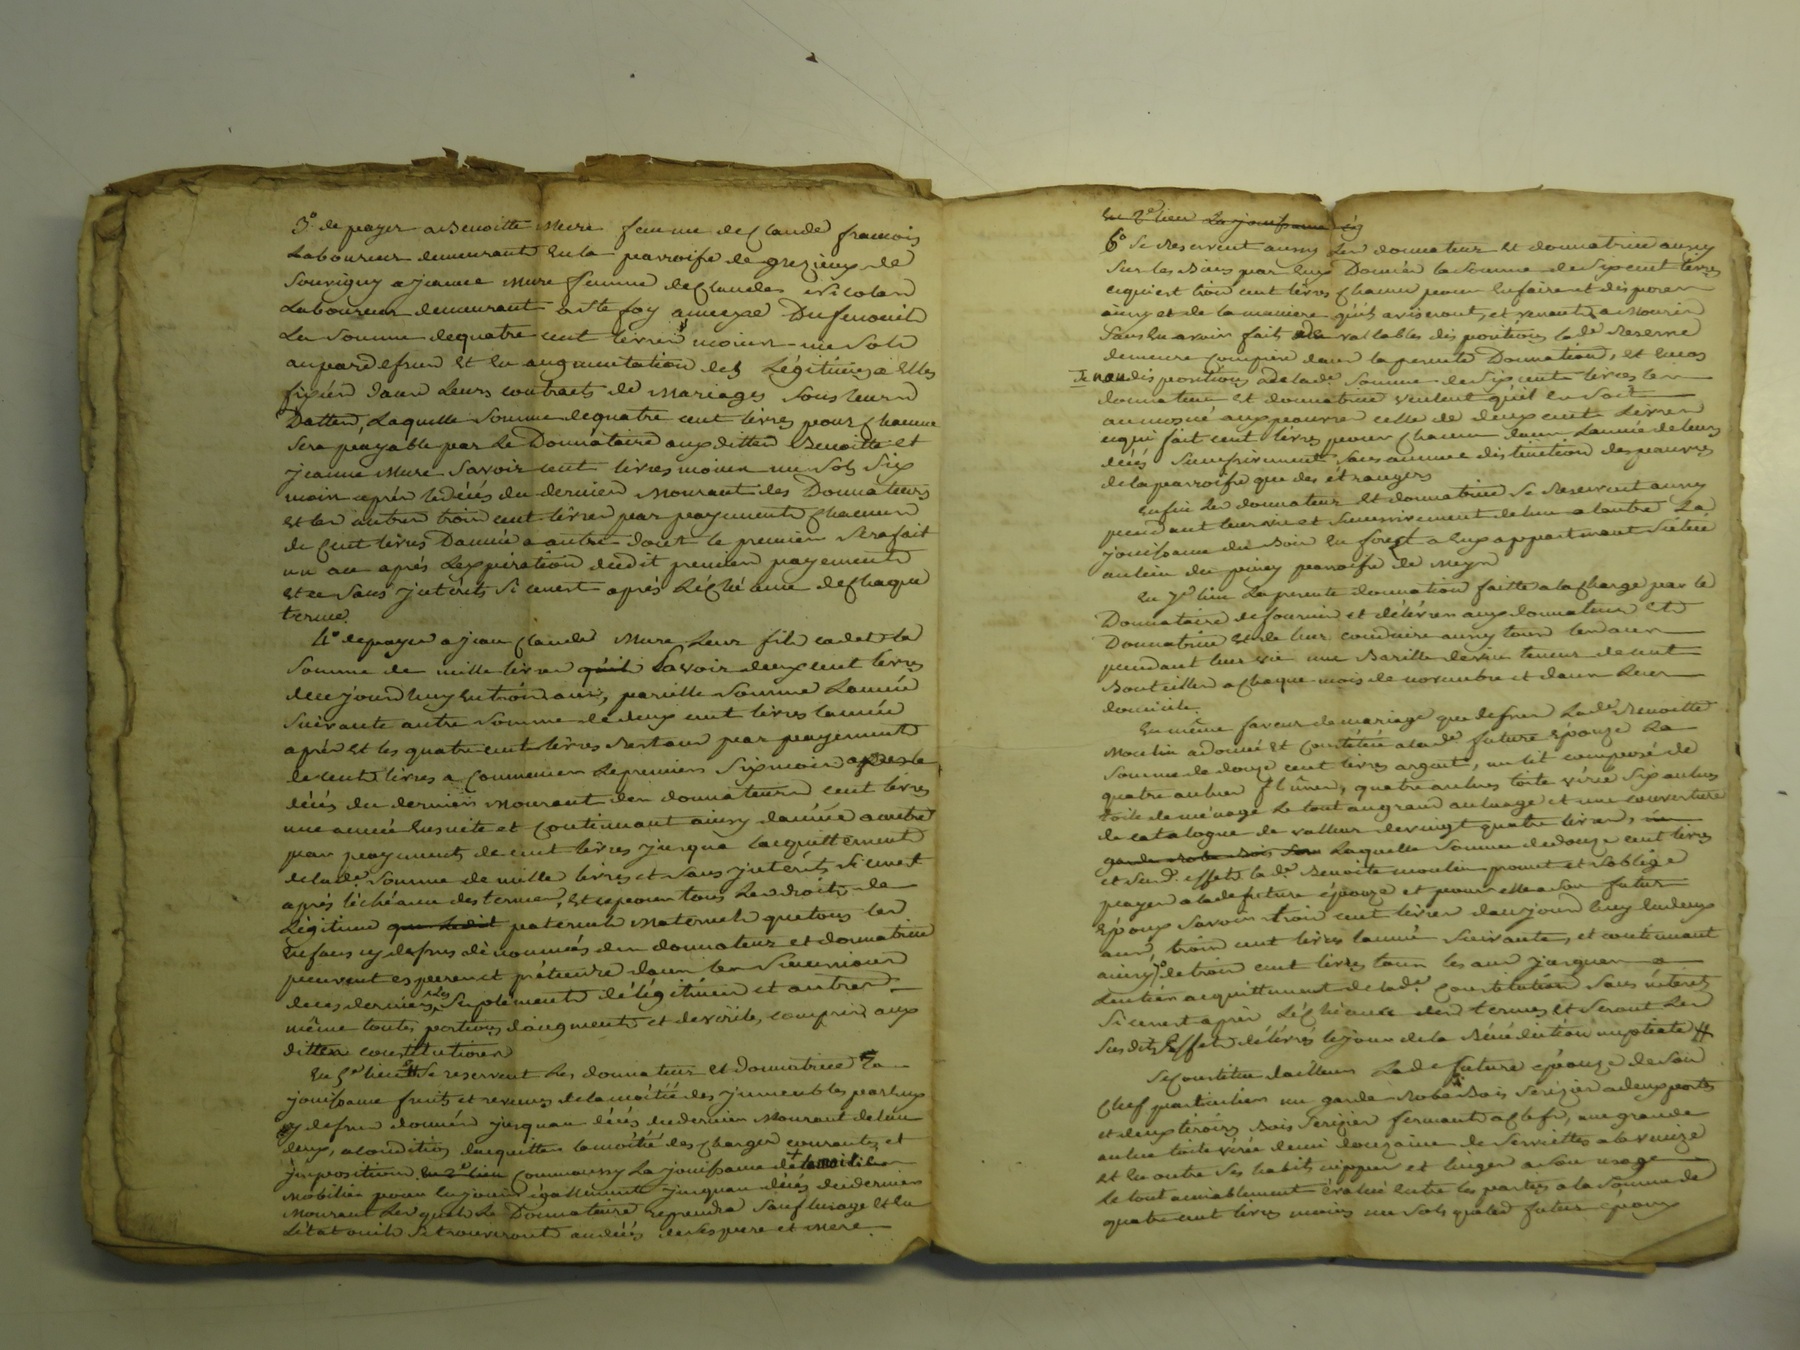 3° de payer a Benoitte Mure femme de Claude francois
Laboureur demeurant en la parroisse de grezieux de
Souvigny a jeanne Mure femme de Claudes Nicolas
Laboureur demeurant a Ste foy annexe Du fenouil
La Somme de quatre cent livres moins un Sols
au pardessus Et En augmentation des Légitimes a Elles
fixées dans Leurs contracts de Mariages Sous leurs
Dattes, Laquelle Somme de quatre cent livres pour Chacune
Sera payable par Le Donnataire aux dittes Benoitte et
jeanne Mure Savoir cent livres moins un Sols Six
mois après le décés du dernier Mourant des Donnateurs
Et les autres trois cent livres par payements Chacun
de Cent livres D'année a autre dont le premier Sera fait
un an après L'expiration dudit premier payement
Et ce Sans jnteréts Si ce n'est après L'échéance de Chaque
terme.
4° de payer a jean Claude Mure Leur fils cadet la
Somme de mille livres qu'il Savoir deux cent livres
de ce jourd'huy En trois ans, pareille Somme L'année
Suivante autre Somme de deux cent livres l'année
après Et les quatre cent livres Restans par payement
de cent livres a Commencer Le premier Six mois après le
décés du dernier Mourant des donnateurs cent livres
une année Ensuite et Continuant aussy d'année a autre
par payements de cent livres jusqu'a L'acquittement
de lade Somme de mille livres et Sans jnteréts Si ce n'est
après l'échéance des termes, Et ce pour tous Les droits de
Légitime que Ledit paternels Maternels que tous les
Enfans cy dessus dénommés des donnateur et donnatrice
peuvent esperer et prétendre dans les Successions
de ces derniers Les Suplements de légitimes et autres
même toutes portions d'augments et de virile, compris aux
dittes constitutions
En 5e lieu Se reservent Les donnateur Et Donnatrice La
jouissance fruits et revenus de la moitié des jmmeubles par Eux
cy dessus donnés jusqu'au décés du dernier Mourant de l'un
deux, a condition d'acquitter la moitié des Charges courantes et
jmpositions En 2e lieu Comm'aussy La jouissance de la moitié du
Mobilier pour En jouir également jusqu'au décés du dernier
Mourant Lesquels Le Donnataire reprendra Sauf L'usage Et En
L'état ou ils Se trouveront au décés de Ses pere et Mere.
En 2e lieu La jouissance
6° Se Reservent aussy Les donnateur Et donnatrice aussy
Sur les Biens par Eux Donnés la Somme de Six cent livres
ce qui est trois cent livres Chacun pour En faire et disposer
ainsy et de la maniere qu'ils aviseront, et venants a Mourir
Sans En avoir fait de vallables dispositions lade Reserve
demeure Comprise dans la presente Donnation, Et En cas
de non dispositions de lade Somme de Six cent livres les
donnateur Et donnatrice veulent qu'il En Soit
aumoné aux pauvres celle de deux cent Livres
ce qui fait cent livres pour Chacun dans L'année de leurs
décés Sans aucune distinction des pauvres
de la parroisse que des étrangers
Enfin Les donnateur Et donnatrice Se Reservent aussy
pendant leur vie et Survivement de l'un a l'autre La
jouissance du Bois En forest a Eux appartenant Situé
au lieu du piney parroisse de Meys
En 7e lieu La presente donnation faitte a la Charge par le
Donnataire de fournir et délivrer aux donnateur Et
Donnatrice Et de leur conduire aussy tous les ans
pendant leur vie une Barille de vin teneur de cent
Bouteilles a Chaque mois de novembre et dans Leur
domicile.
En même faveur de mariage que dessus Lade Benoitte
Moulin a donné Et Constitué a lade future Epouze La
Somme de douze cent livres argent, un lit composé de
quatre aulnes flûnes, quatre aulnes toile virée Six aulnes
toile de ménage Le tout au grand aulnage et une couverture
de catalogne de valleur de vingt quatre livres, un
garde Robe Bois Laquelle Somme de douze cent livres
et Susd. effets lade Benoite moulin promet et S'oblige
payer a lade future épouze et pour elle a Son futur
Epoux Savoir trois cent livres d'aujourd'huy En deux
ans, trois cent livres l'année Suivante, et continuant
aussy de trois cent livres tous les ans jusques a
L'entier acquittement de lade Constitution Sans intérêts
Si ce n'est après L'échéance des termes Et Seront Les
Susdits Effets délivrés le jour de la Bénédiction nuptiale #
Se Constitue d'ailleurs Lade future épouze de Son
Chef particulier un garde Robe Bois Serizier a deux portes
et deux tiroirs Bois Serizier fermant a Clefs, une grande
aulne toile virée demi douzaine de Serviettes a la venize
Et En outre Ses habits nippes et linges a Son usage
Le tout amiablement évalué Entre les parties a la Somme de
quatre cent livres moins un Sols que led futur époux